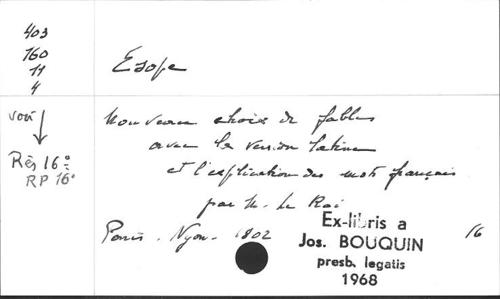 403
160
11
4
voir
Rés 16°
RP 16°
Esope
Nouveau choix de fables
avec la version latine
et l'explication des mots français
par M. Le Roi
Paris. Nyon. 1802
16
Ex-libris a
Jos. BOUQUIN
presb. legatis
1968